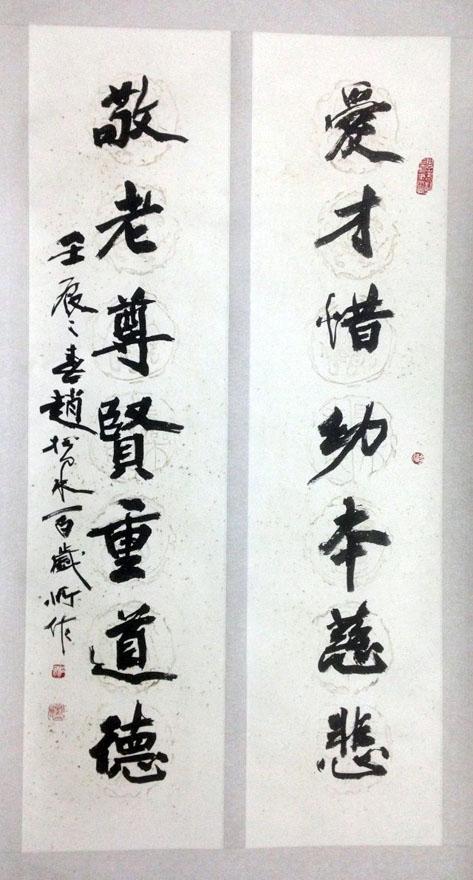 愛才惜幼本慈悲
敬老尊賢重道德
壬辰之春趙松泉百歲所作